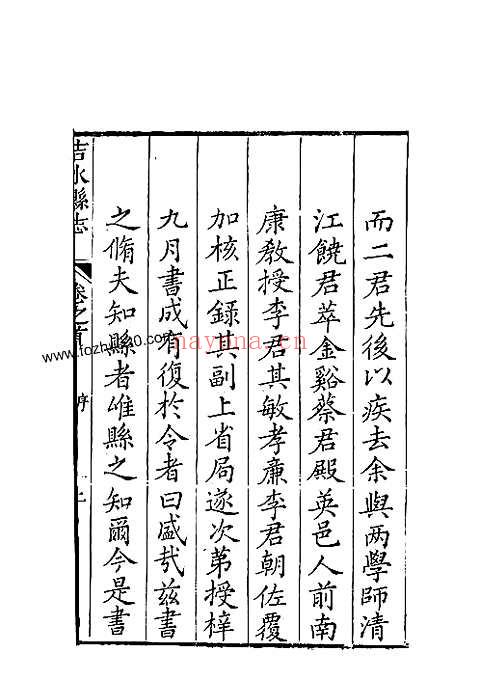 而二君先後以疾去余與两學師清
江饒君萃金谿蔡君殿英邑人前南
康教授李君其敏孝亷李君朝佐覆
加核正錄其副上省局遂次苐授梓
九月書成有復於令者曰盛㢤兹書
之脩夫知縣者惟縣之知爾今是書
吉水縣志
卷之首
序
nayona.cn
www.fozhu920.com